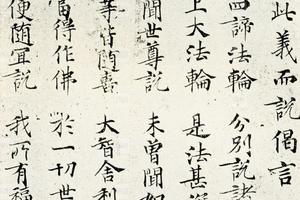 此義而說偈言
四諦法輪 分別說諸
上大法輪 是法甚深
聞世尊說 未曾聞如
等皆隨喜 大智舍利
當得作佛 於一切世
便隨冝說 我所有福